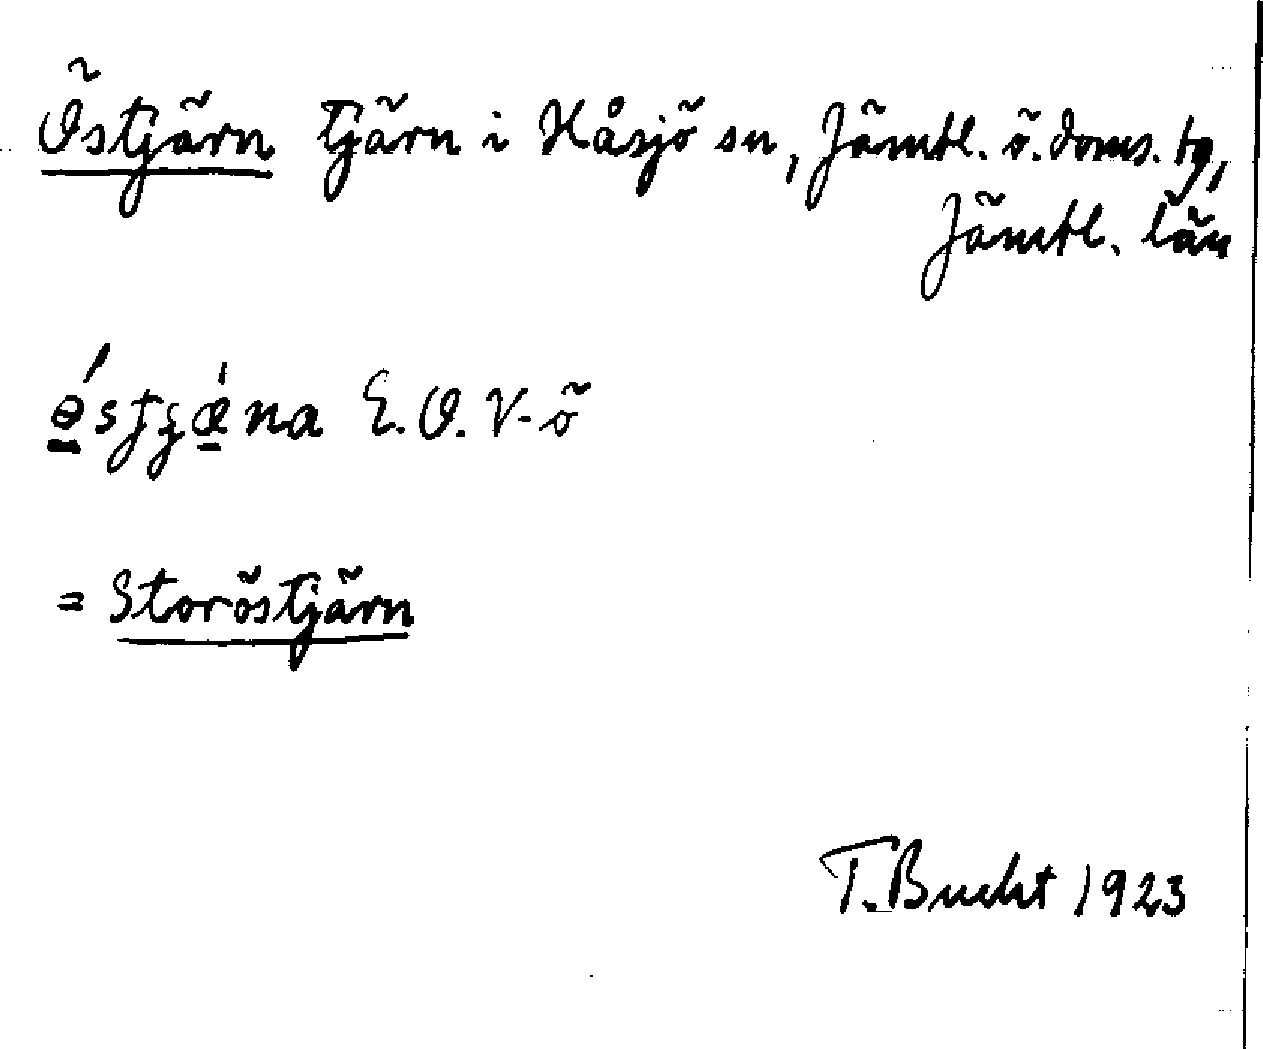 Östjärn tjärn i Håsjö sn, Jämtl. ö. doms. tg,
Jämtl. län
E.O. V-ö
= Storöstjärn
T. Bucht 1923